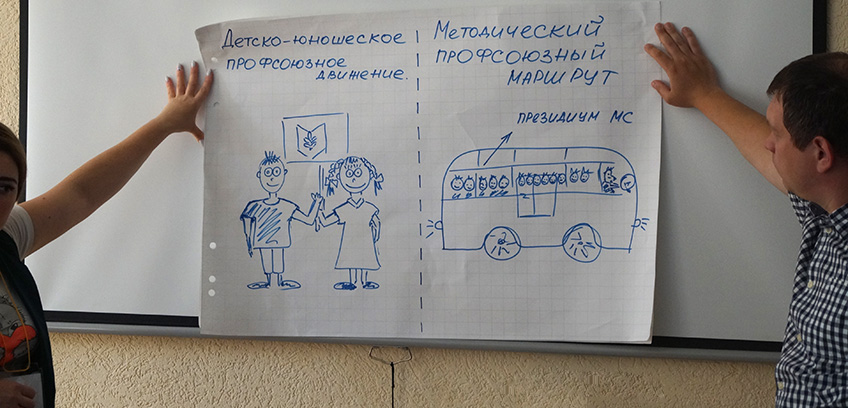 Детско-юношеское
профсоюзное
движение.
Методический
профсоюзный
маршрут
президиум МС